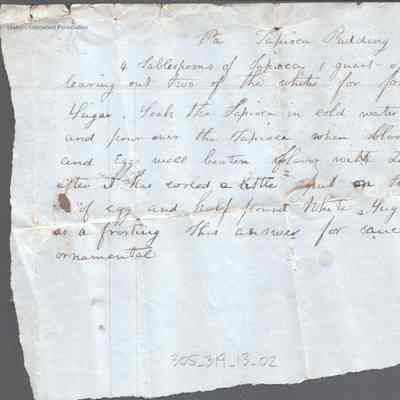 Historic Annapolis Foundation
Pa Tapioca Pudding
4 Tablespoons of Tapioca, 1 quart
leaving out two of the whites for
Sugar. Soak the Tapioca in cold water
and pour over the Tapioca when
and Eggs well beaten flaving with
after it has cooled a little put on
of egg and half pound White Sug
as a frosting this answers for
ornamental
305_319_13_02